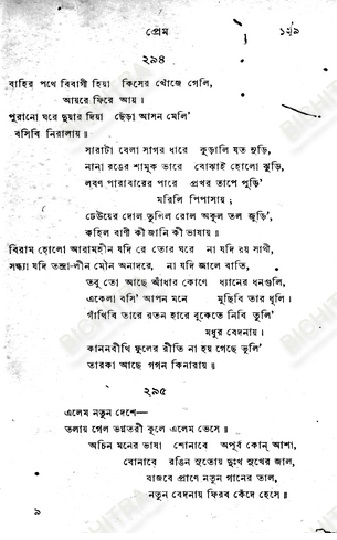 প্রেম ১২৯
২৯৪
বাহির পথে বিবাগী হিয়া কিসের খোঁজে গেলি,
আয়রে ফিরে আয়॥
পুরানো ঘরে দুয়ার দিয়া ছেঁড়া আসন মেলি'
বসিবি নিরালায়॥
সারাটা বেলা সাগর ধারে কুড়ালি যত নুড়ি,
নানা রঙের শামুক ভারে বোঝাই হোলো ঝুড়ি,
লবণ পারাবারের পারে প্রখর তাপে পুড়ি'
মরিলি পিপাসায়;
ঢেউয়ের দোল তুলিল রোল অকূল তল জুড়ি',
কহিল বাণী কী জানি কী ভাষায়॥
বিরাম হোলো আরামহীন যদি রে তোর ঘরে না যদি রয় সাথী,
সন্ধ্যা যদি তন্দ্রালীন মৌন অনাদরে, না যদি জ্বালে বাতি,
তবু তো আছে আঁধার কোণে ধ্যানের ধনগুলি,
একেলা বসি' আপন মনে মুছিবি তার ধূলি।
গাঁথিবি তারে রতন হারে বুকেতে নিবি তুলি'
মধুর বেদনায়।
কাননবীথি ফুলের রীতি না হয় গেছে ভুলি'
তারকা আছে গগন কিনারায়॥
২৯৫
এলেম নতুন দেশে—
তলায় গেল ভগ্নতরী কূলে এলেম ভেসে॥
অচিন মনের ভাষা শোনাবে অপূর্ব কোন্ আশা,
বোনাবে রঙিন সুতোয় দুঃখ সুখের জাল,
বাজবে প্রাণে নতুন গানের তাল,
নতুন বেদনায় ফিরব কেঁদে হেসে॥
৯
BICHITRA